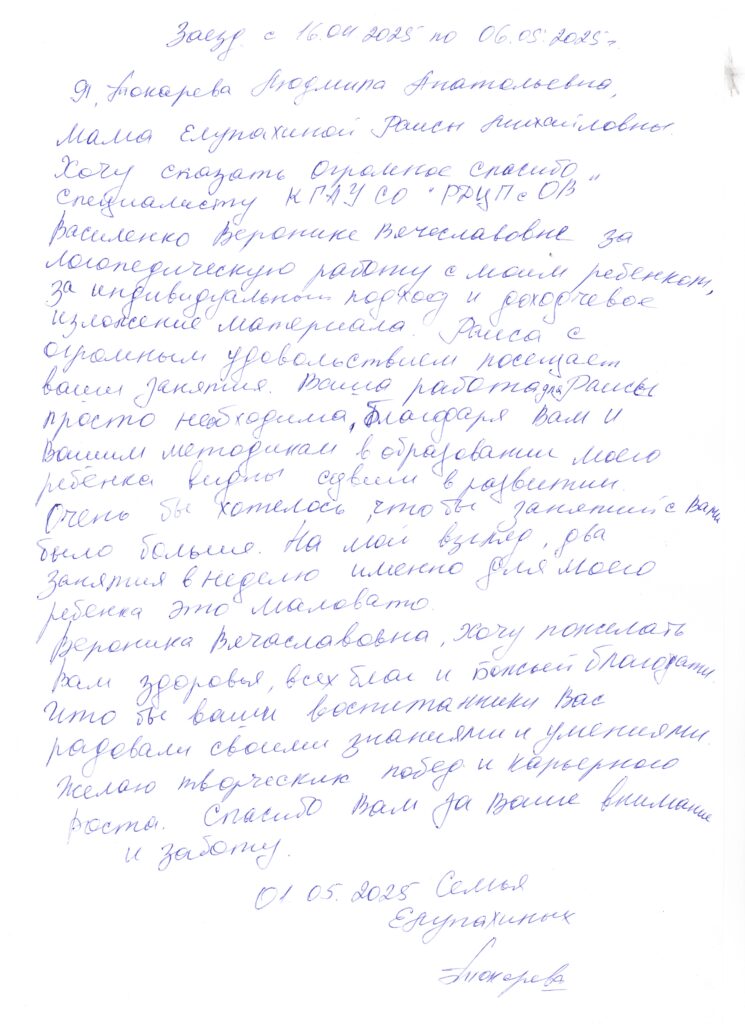 Заезд с 16.04 2025 по 06.05.2025г.
Я, Токарева Людмила Анатольевна,
мама Елупахиной Раисы Михайловны.
Хочу сказать огромное спасибо
специалисту КГАУ СО "РДЦПсОВ"
Василенко Веронике Вячеславовне за
логопедическую работу с моим ребенком,
за индивидуальный подход и доходчевое
изложение материала. Раиса с
огромным удовольствием посещает
ваши занятия. Ваша работа для Раисы
просто необходима, Благодаря Вам и
Вашим методикам в образовании моего
ребёнка видны сдвиги в развитии.
Очень бы хотелось, что бы занятий с Вами
было больше. На мой взгляд, два
занятия в неделю именно для моего
ребенка это маловато.
Вероника Вячаславовна, хочу пожелать
Вам здоровья, всех благ и Божьей благодати.
Что бы ваши воспитанники Вас
радовали своими знаниями и умениями.
Желаю творческих побед и карьерного
роста. Спасибо Вам за Ваше внимание
и заботу.
01.05.2025 Семья
Елупахиных
Токарева